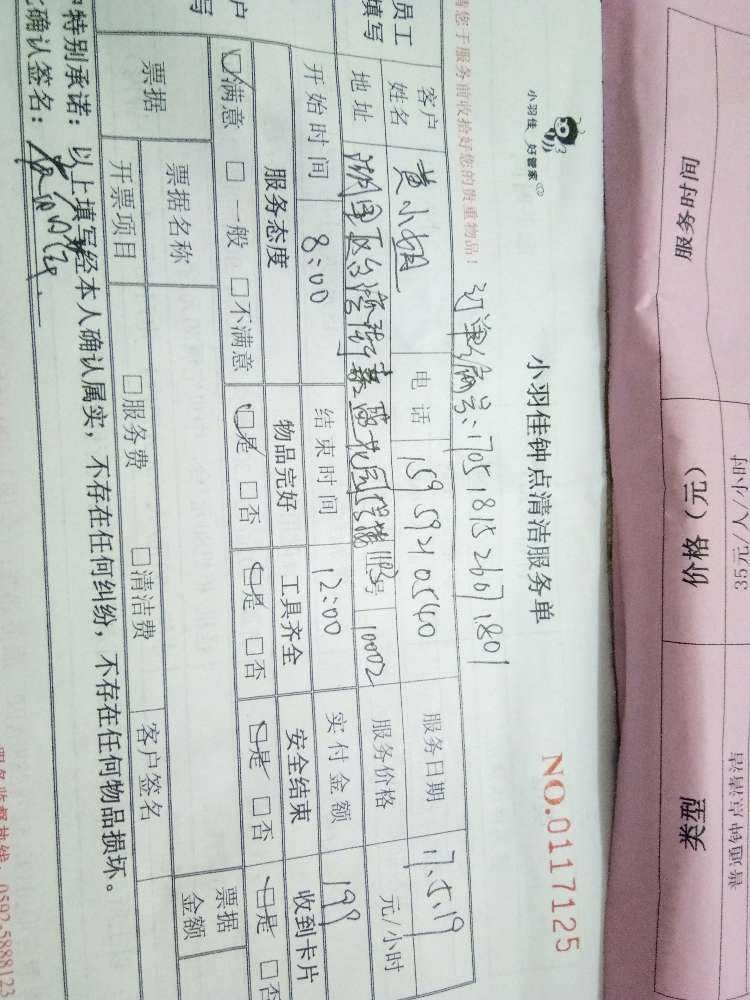 服务时间 价格（元） 类型
35元/人/小时 普通钟点清洁
小羽佳 好管家
小羽佳钟点清洁服务单 NO.0117125
订单编号：1705181526071801
请您于服务前收拾好您的贵重物品！
员工填写
客户姓名 黄小姐 电话 15959210540 服务日期 17.5.19
地址 10002 服务价格 元/小时
开始时间 8:00 结束时间 12:00 实付金额 199
服务态度 物品完好 工具齐全 安全结束 收到卡片
□满意 □一般 □不满意 □是 □否 □是 □否 □是 □否 □是 □否
票据 票据名称 票据金额
开票项目 □服务费 □清洁费 客户签名
特别承诺：以上填写经本人确认属实，不存在任何纠纷，不存在任何物品损坏。
确认签名：
0592-5888123